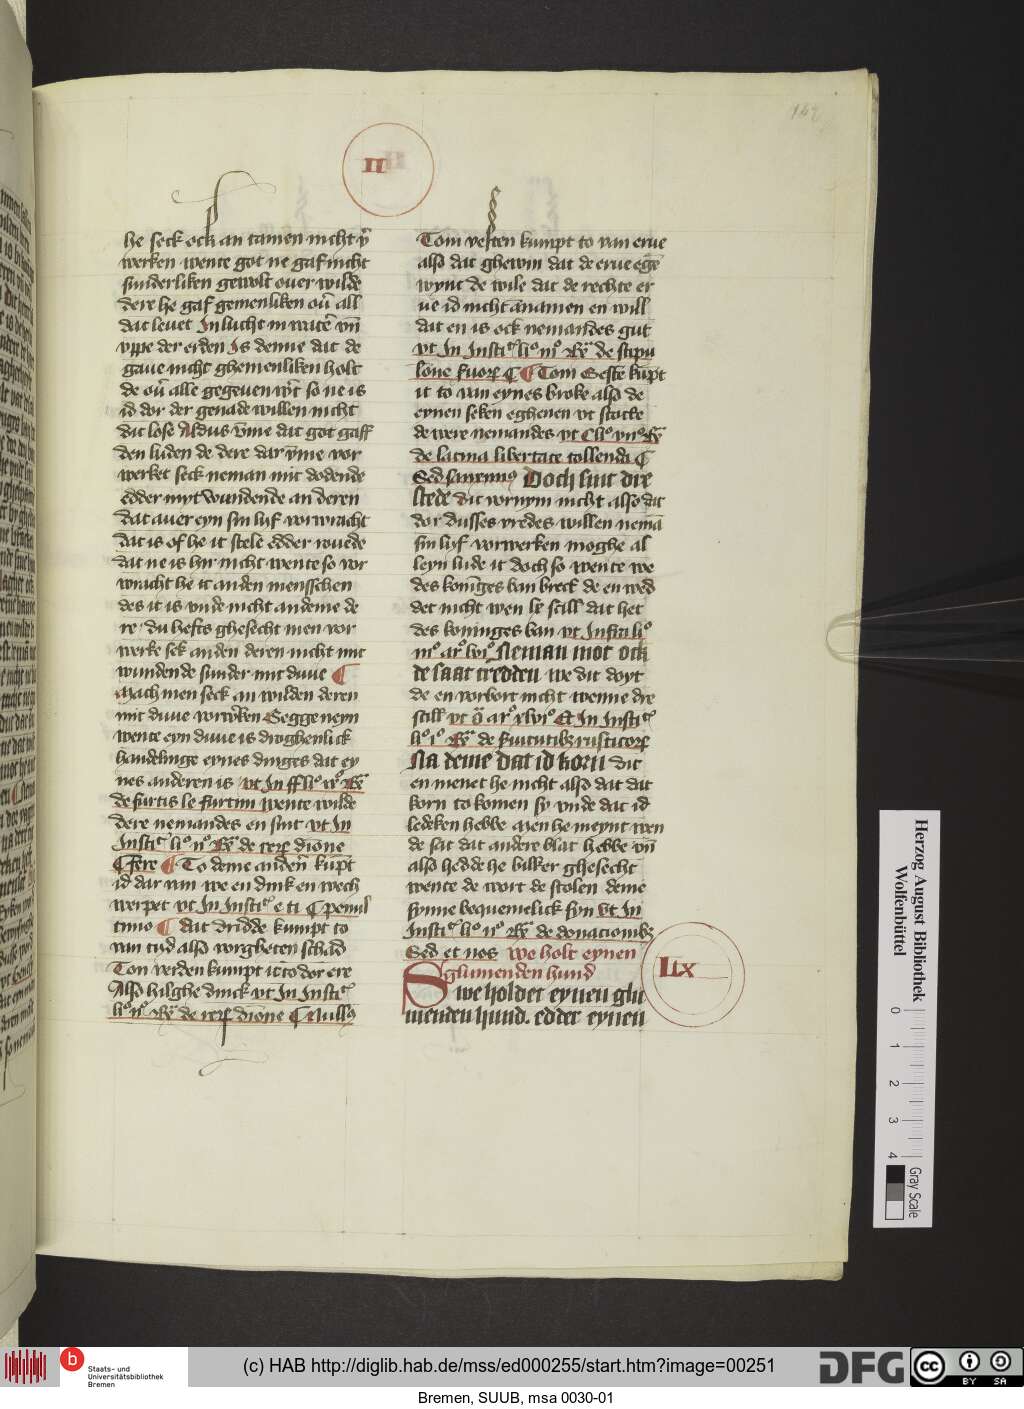 142
II
he seck ock an tamen nicht v̄
werken wente got ne gaf nicht
sunderliken gewolt ouer wilde
dere he gaf gemenliken ou̅ all
dat leuet In lucht in wat̅e vn̅
vppe der erden Is denne dat de
gaue nicht ghemenliken holt
de ou̅ alle gegeuen w̅t so ne is
id dor der genade willen nicht
dat lose Aldus v̅me dat got gaff
den luden de dere dar v̅me vor
werket seck neman mit dodende
edder myt wundende an deren
dat auer eyn sin lyf vorwracht
dat is of he it stele edder rouede
dat ne is hir nicht wente so vor
wracht he it an den mensschen
des it is vnde nicht an deme de
re du hefts ghesecht men vor
werke sek an den deren nicht mit
wundende sunder mit duue ¶
Mach men seck an wilden deren
mit duue vorw̅ken Segge neyn
wente eyn duue is droghenlick
handelinge eynes dinges dat ey
nes anderen is vt In ff li° 
de furtis le furtim wente wilde
dere nemandes en sint vt In
Instit li° n° de rer̅ dione
¶ fere ¶ To deme anderen̅ ku̅pt
id dar van we en dink en wech
werpet vt In Instit e ti ¶ penul
timo ¶ dat dridde kumpt to
van tyd also vorgheten schad
Ton verden kumpt it to dor ere
Also hilghe dinck vt In Instit
li° n° de rer̅ dione ¶ Nullꝰ
Tom vesten kumpt to van erue
also dat ghewin dat de erue ege̅
wynt de wile dat de rechte er
ue id nicht a̅namen en will
dat en is ock nemandes gut
vt In Instit li° m° de stipu
lone suor̅ ¶ ¶ Tom Seste ku̅pt
it to van eynes broke also de
eynen seken eghenen vt stotte
de were nemandes vt C li° vn°
de latina libertate tollenda ¶
Doch sint dre
stede dit vornym nicht also dat
dor dusses vredes willen nema̅
sin lyf vorwerken moghe al
leyn lude it doch so wente we
des koni̅ges ban breck de en wed
det nicht wen le scill dat het
des koninges ban vt Infra li°
m° ar° lvi° Neman mot ock
de saat tredden we dit doyt
de en vorbort nicht wenne dre
scill vt ar° xlvi° Et In Instit
li° i° de seruitutibꝫ rusticor̅
Na deme dat id korn dit
en menet he nicht also dat dat
korn to komen sy vnde dat id
ledeken hebbe Men he meynt wen
de sat dat andere blat hebbe vn̅
also hedde he bilker ghesecht
wente de wort de stolen deme
synne bequemelick syn vt In
Instit li° n° de donacionibꝫ
Sed et nos we holt eynen
glumenden hund
LIX
Swe holdet eynen glu
menden hund. edder eynen
Herzog August Bibliothek
Wolfenbüttel
0 1 2 3 4
Gray Scale
b
Staats- und
Universitätsbibliothek
Bremen
(c) HAB http://diglib.hab.de/mss/ed000255/start.htm?image=00251
DFG
cc BY SA
Bremen, SUUB, msa 0030-01